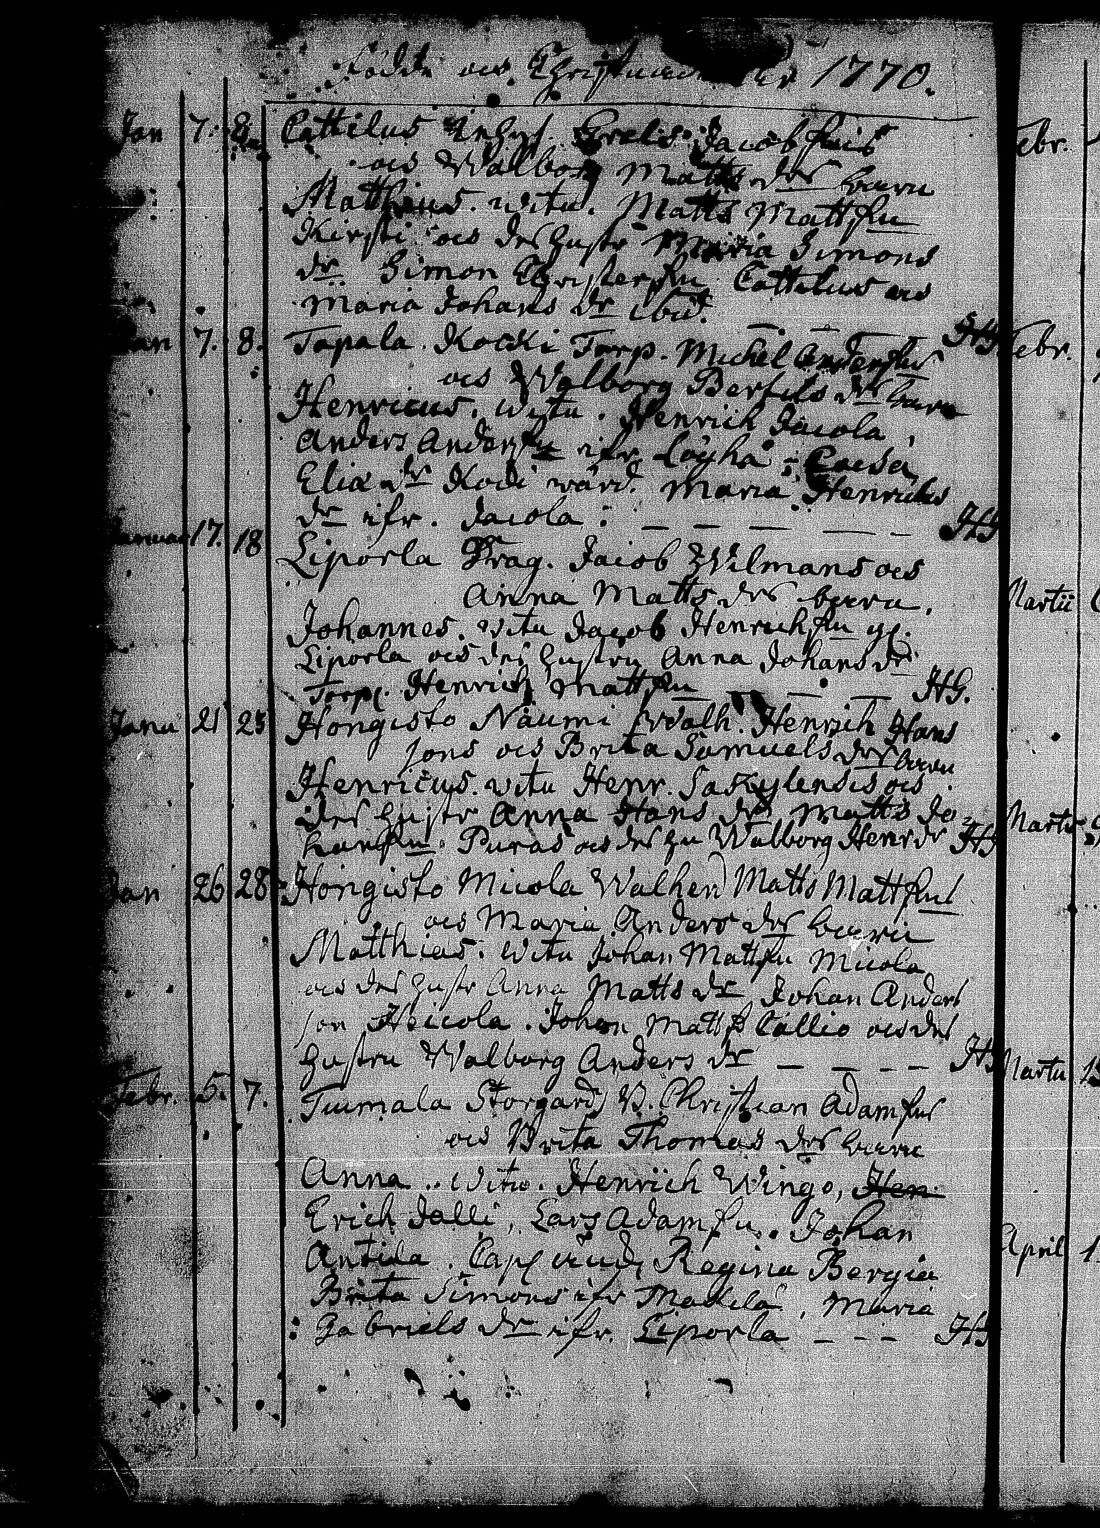 Födde och Christnade År 1770.
Jan 7. 8. Cattilus Inhys. Grels Jacobssons
och Walborg Matts dr barn
Matthias. witn. Matts Mattssn
Kirsti och des hustr Maria Simons
dr Simon Christerssn Cattilus och
Maria Johans dr ibid. HG
Jan 7. 8. Topala Kocki Torp. Michel Anderssons
och Walborg Bertils dr barn
Henricus. witn. Henrich Jacola,
Anders Anderssn ifr. Löyhä; Caisa
Elia dr Kocki wärd. Maria Henrichs
dr ifr. Jacola: HG
Januar 17. 18 Liporla Drag. Jacob Wilmans och
Anna Matts drs barn.
Johannes. witn Jacob Henrichssn
Liporla och des hustru Anna Johans dr
Torp. Henrich Mattssn HG.
Janu 21 25 Hongisto Näumi Walh. Henrich Hans
sons och Brita Samuels drs barn
Henricus. witn Henr. Säkylensis och
des hustr Anna Hans dr Matts Jo-
hanssn. Puras och des hu Walborg Henr dr HG
Jan 26 28 Hongisto Micola Walhen Matts Mattssns
och Maria Anders drs barn
Matthias. witn Johan Mattssn Micola
och des hustr Anna Matts dr Johan Anders
son Heicola. Johan Matts Callio och des
hustru Walborg Anders dr HG
Febr. 5. 7. Tuimala Storgård B. Christian Adamssns
och Brita Thomas drs barn
Anna.. witn. Henrich Wingo, Hen
Erich Jalli, Lars Adamssn. Johan
Antila. Regina Bergia
Brita Simons ifr Mackila, Maria
Gabriels dr ifr. Liporla HG
Febr.
Febr.
Martii
Marti
Martii
April